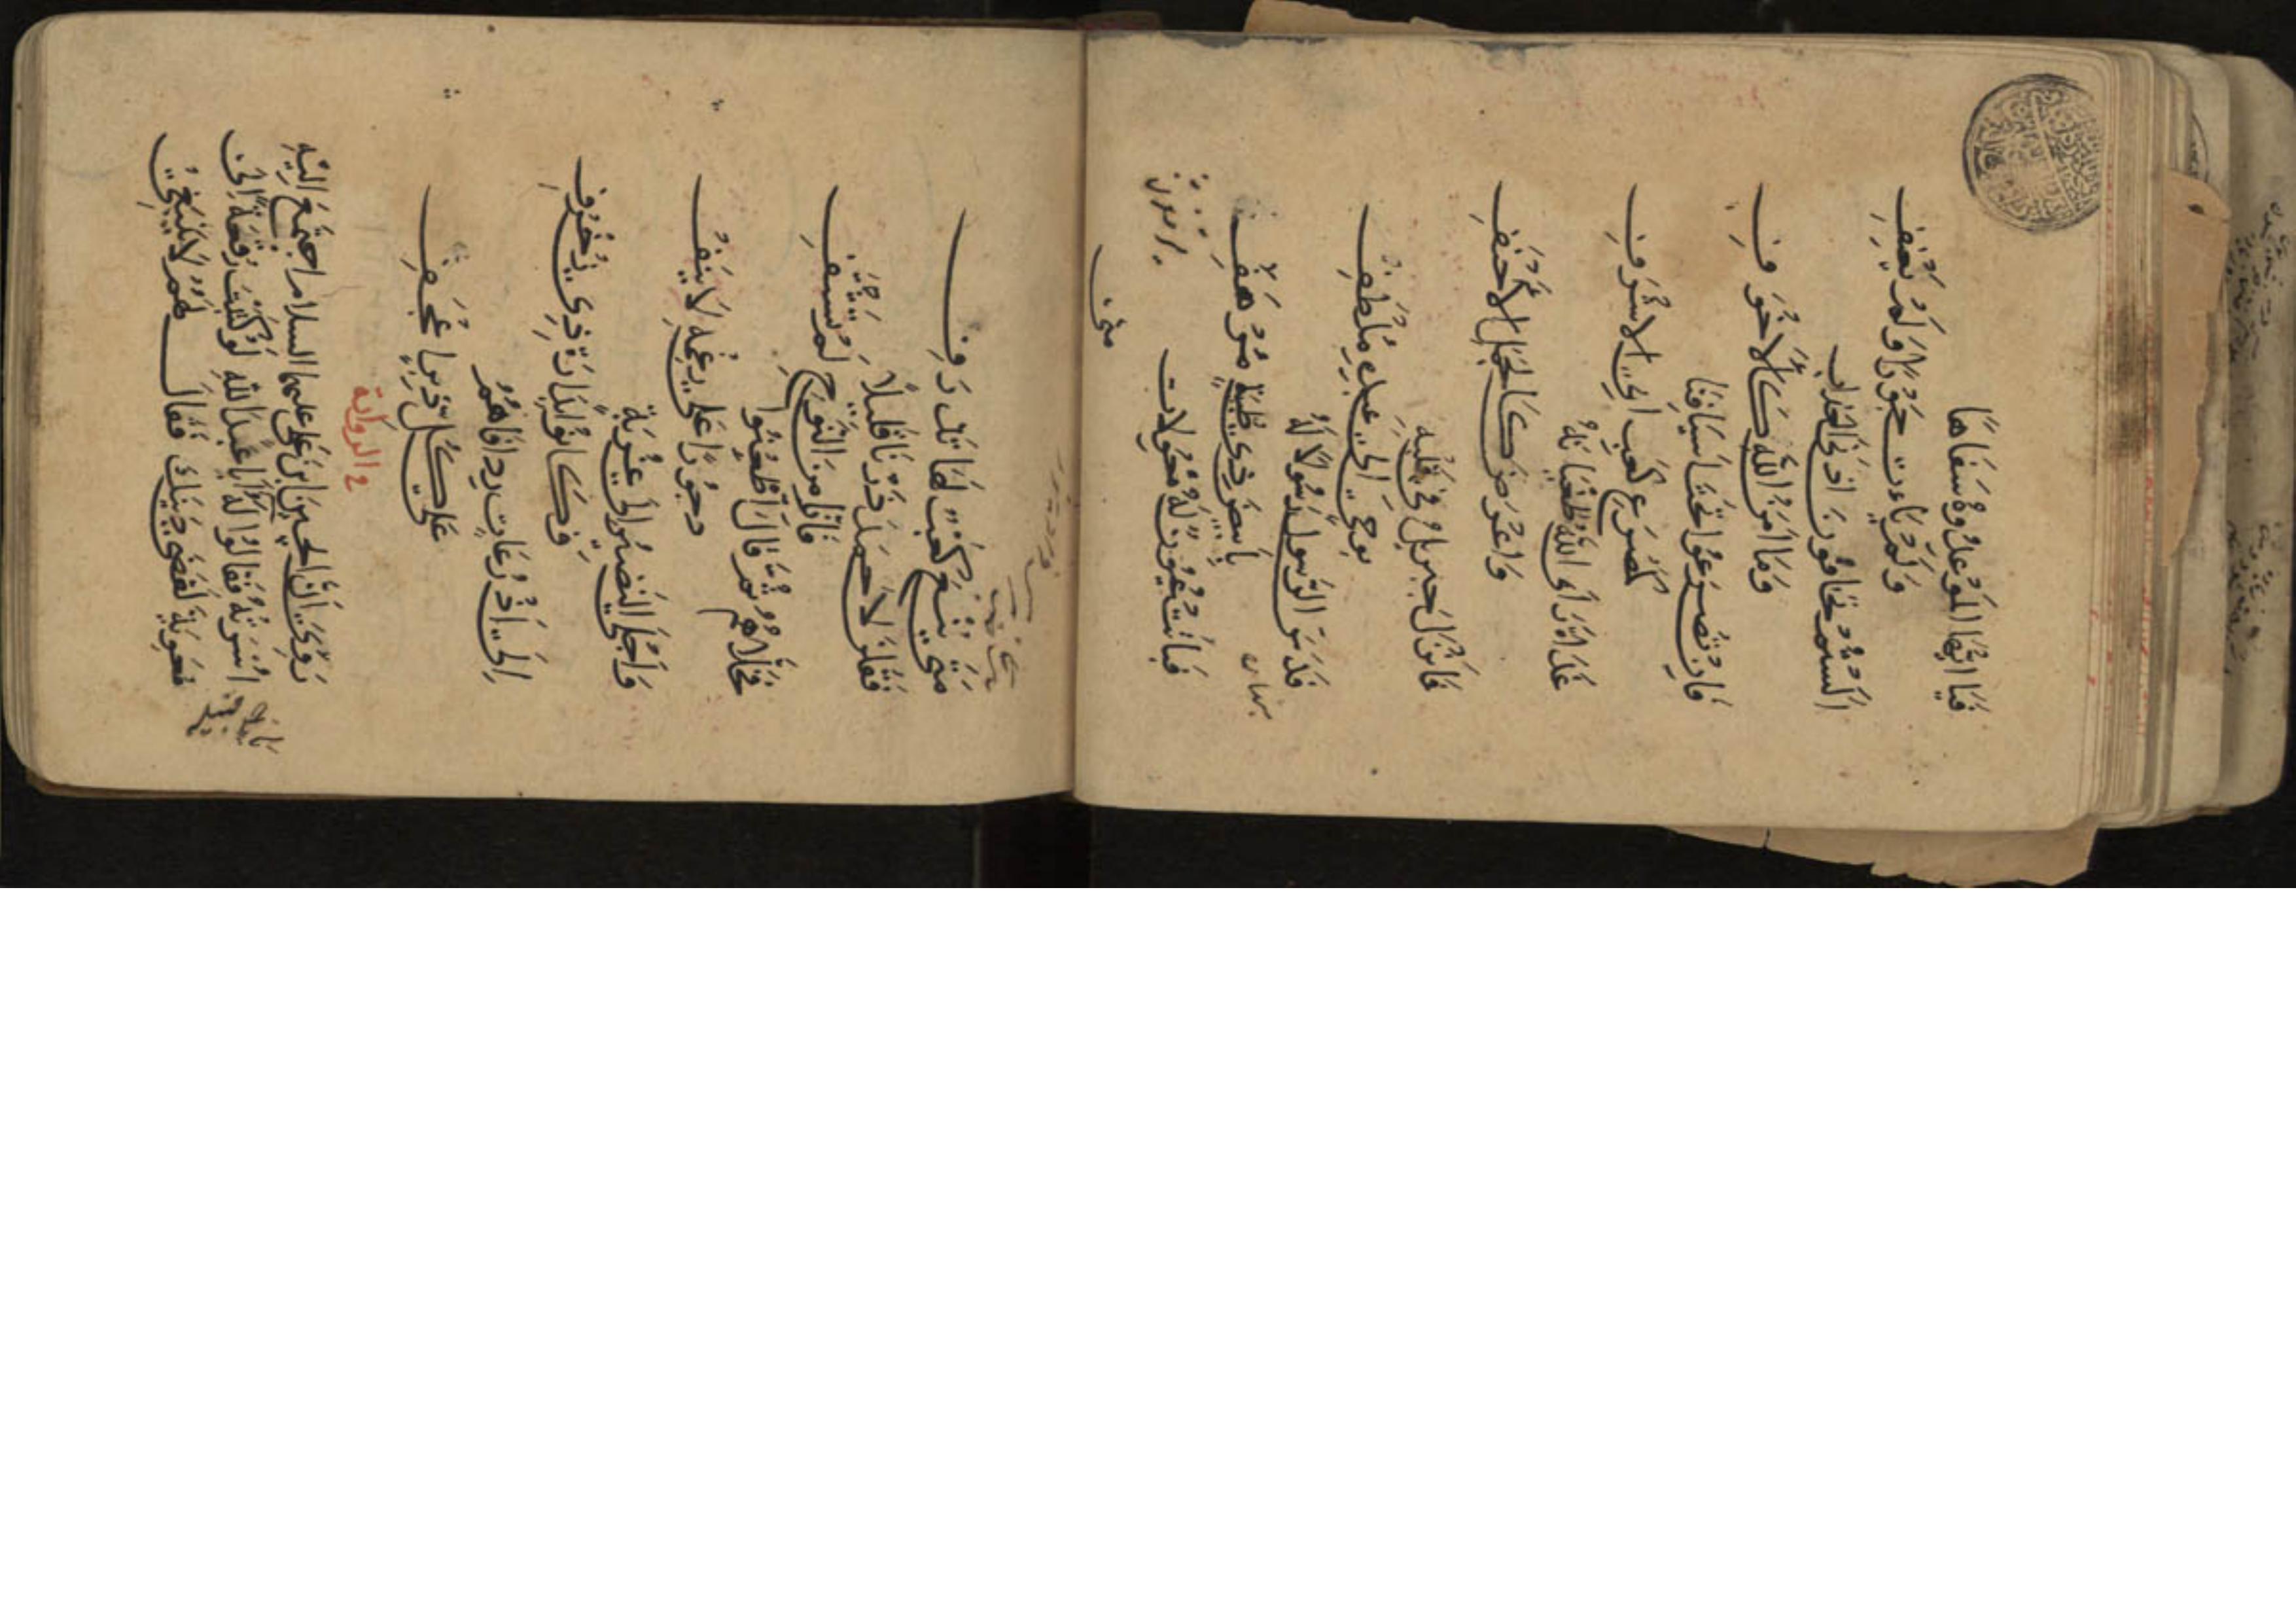 فَيَا اَيُّهَا الْمُوعِدُوهُ سَفَاهًا
وَلَمْ يَأتِ جَوْرًا وَلَمْ يَعْنُفِ
اَلَسْتُمْ تَخَافُونَ اَدْنَى الْعَذَابِ
وَمَا اٰمِنُ اللّٰهِ كَالْاَخْوَفِ
فَاِنْ تُصْرَعُوا تَحْتَ اَسْيَافِنَا
كَمَصْرَعِ كَعْبٍ اَبِي الْاَشْرَفِ
غَدَاةَ رَاَى اللّٰهُ طُغْيَانَهُ
وَاَعْرَضَ كَالْجَمَلِ الْاَجْنَفِ
فَاَنْزَلَ جِبْرِيلَ فِي قَتْلِهِ
بِوَحْيٍ اِلَى عَبْدِهِ مُلْطَفِ
فَدَسَّ الرَّسُولُ رَسُولًا لَهُ
بِاَبْيَضَ ذِي ظُبَةٍ مُرْهَفِ
فَبَاتَتْ عُيُونٌ لَهُ مُعْوِلَاتٍ
متى
مَتَى يُنْعَ كَعْبٌ لَهَا تَذْرِفِ
فَقُلْنَ لِاَحْمَدَ ذَرْنَا قَلِيلًا
فَاِنَّا مِنَ النَّوْحِ لَمْ نَشْتَفِ
فَخَلَّاهُمُ ثُمَّ قَالَ اظْعَنُوا
دُحُورًا عَلَى رَغْمَةِ الْاٰنُفِ
وَاَجْلَى النَّضِيرَ اِلَى غُرْبَةٍ
وَكَانُوا بِدَارَةِ ذِي زُخْرُفِ
اِلَى اَذْرِعَاتٍ رِدَافًا هُمُ
عَلَى كُلِّ ذِي دَبَرٍ اَعْجَفِ
في الرواية
رَوِيَ اَنَّ الْحُسَيْنَ ابْنَ عَلِي عليهما السلام اجتَمَعَ اِلَيْهِ
اُسْرَتُهُ فَقَالُوا لَهُ يَا اَبَا عَبْدِ اللّٰهِ لَوْ كَتَبْتَ رُقْعَةً اِلَى
مُعٰوِيَةَ لَقَضَى دَيْنَكَ فَقَالَ لَهُمْ لَا يَنْبَغِي